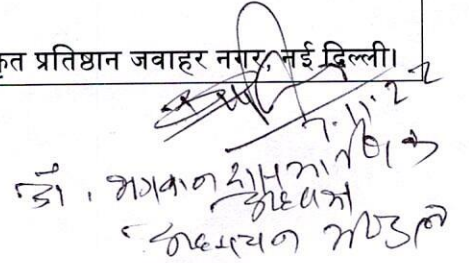 कृत प्रतिष्ठान जवाहर नगर, नई दिल्ली।
7.11.22
डॉ. भगवान दास
अध्यक्ष
अध्ययन मण्डल